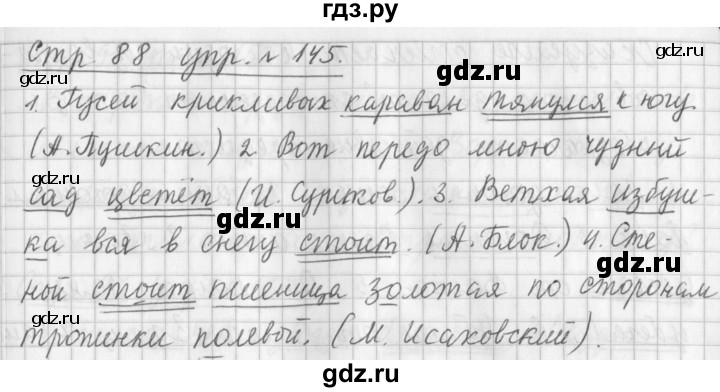 гдз.ру
Стр. 88 упр. № 145.
1. Гусей крикливых караван тянулся к югу
(А. Пушкин.) 2. Вот передо мною чудный
сад цветёт (И. Суриков.). 3. Ветхая избуш-
ка вся в снегу стоит. (А. Блок.) 4. Сте-
ной стоит пшеница золотая по сторонам
тропинки полевой. (М. Исаковский).
gdz.ru
gdz.ru
gdz.ru
gdz.ru
gdz.ru
gdz.ru
gdz.ru
gdz.ru
gdz.ru
gdz.ru
gdz.ru